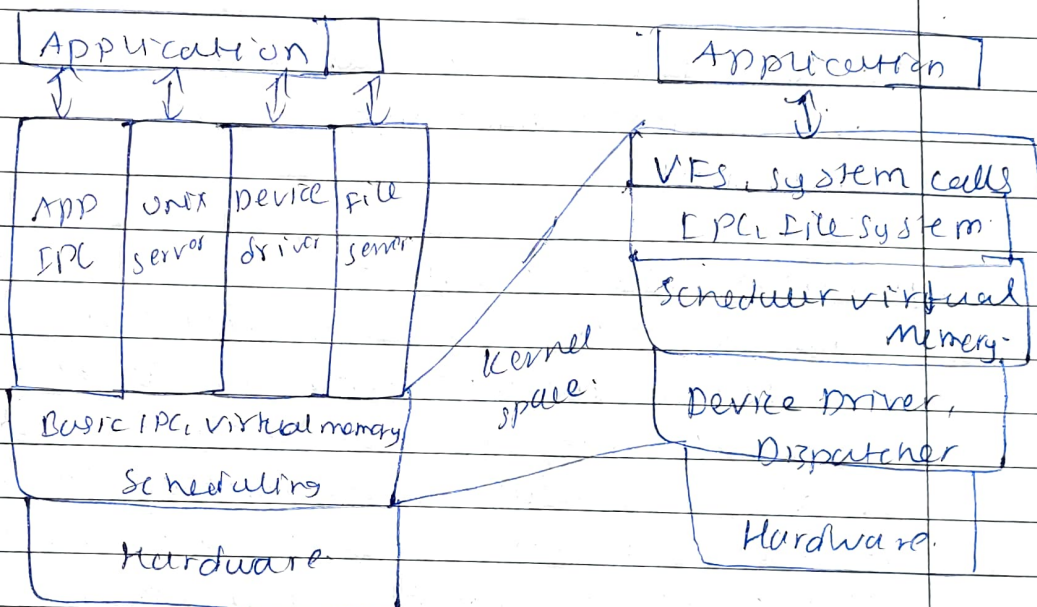 Application
App
IPC
unix
server
Device
driver
file
server
Basic IPC, virtual memory,
Scheduling
Hardware
Kernel
space.
Application
VFS, system calls
IPC, file system
Scheduler virtual
Memory.
Device Driver,
Dispatcher
Hardware.